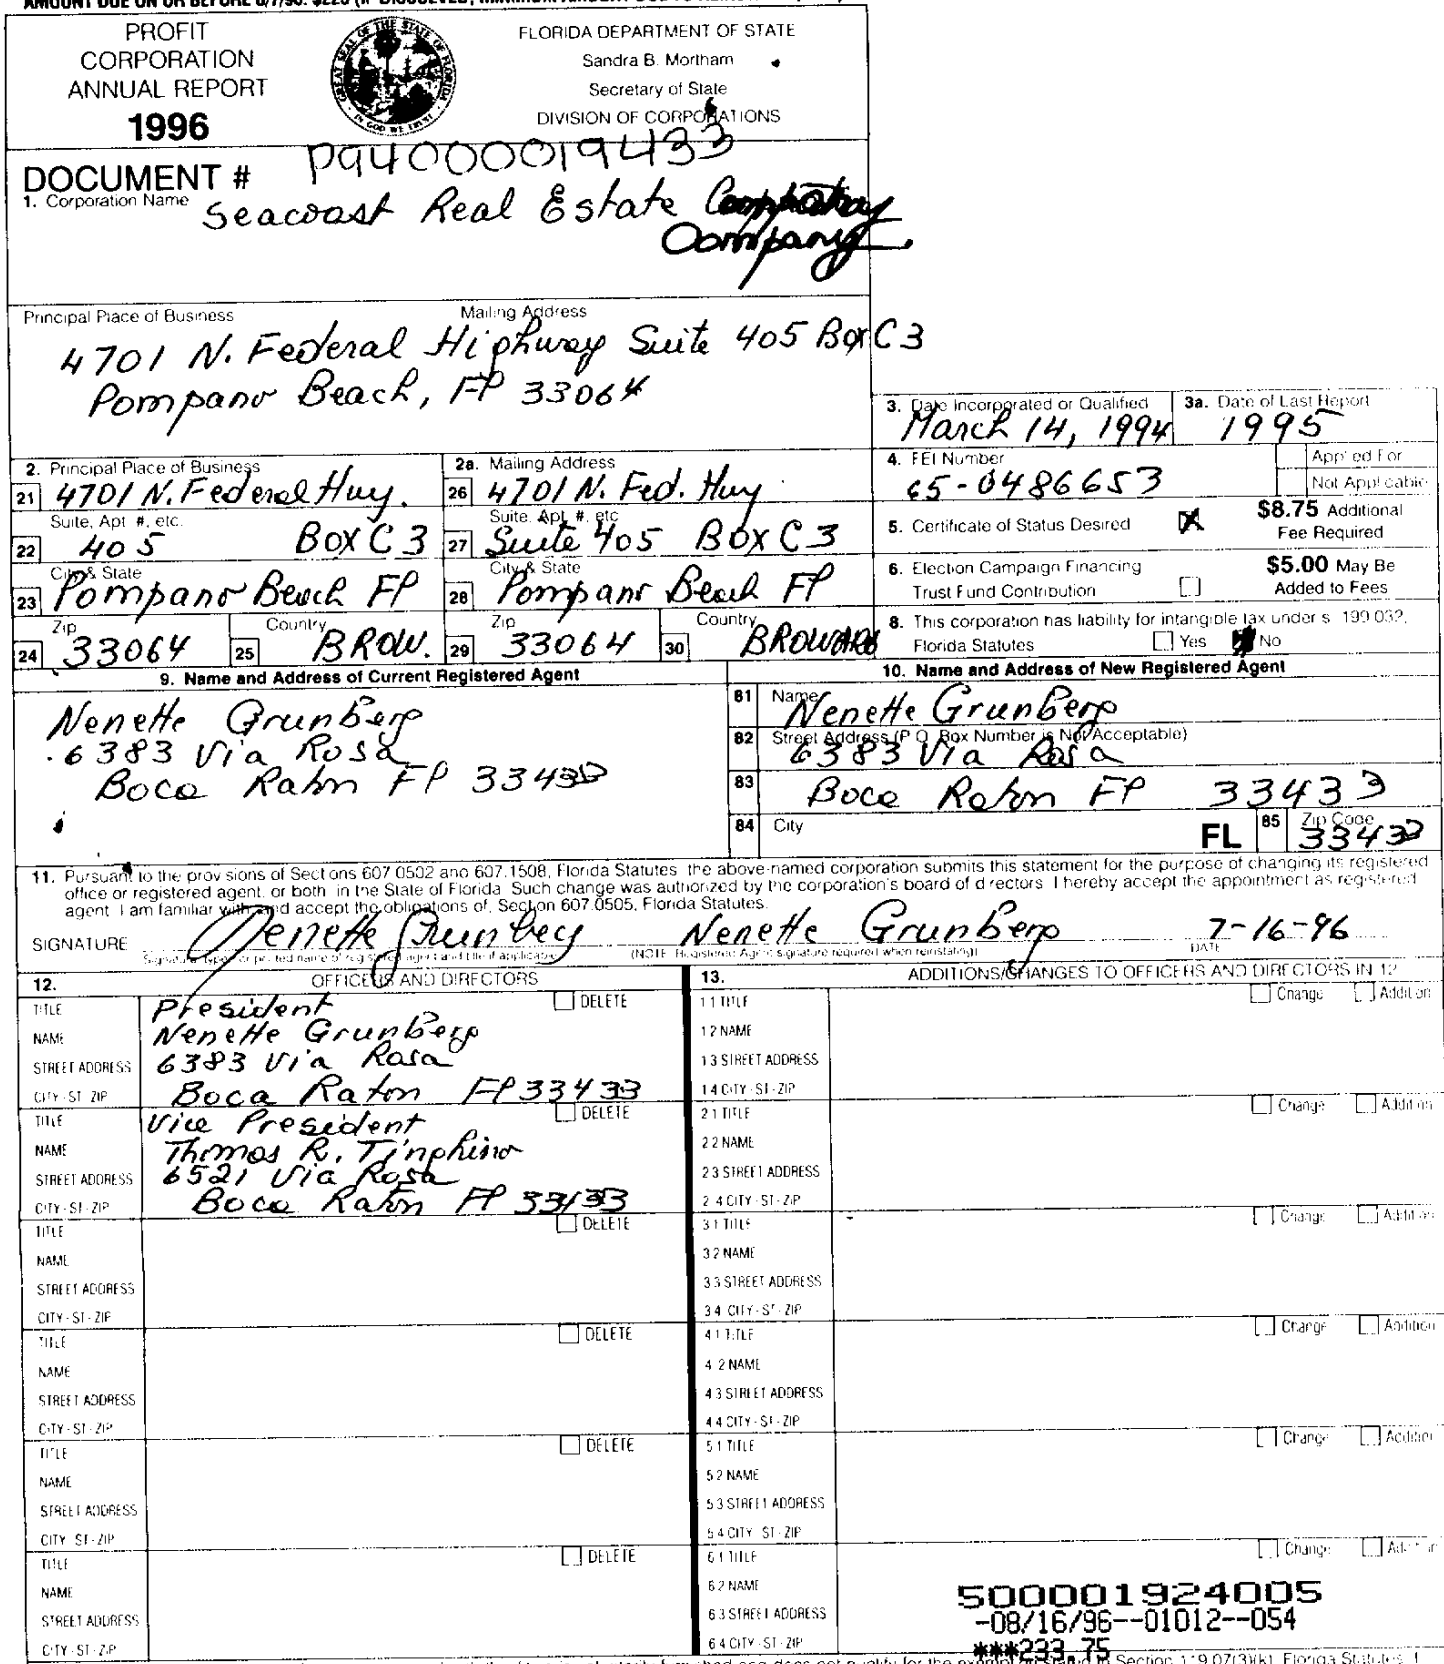 PROFIT
CORPORATION
ANNUAL REPORT
1996
FLORIDA DEPARTMENT OF STATE
Sandra B. Mortham
Secretary of State
DIVISION OF CORPORATIONS
DOCUMENT # P94000019433
1. Corporation Name Seacoast Real Estate
Company.
Principal Place of Business Mailing Address
4701 N. Federal Highway Suite 405 Box C3
Pompano Beach, Fl 33064
3. Date Incorporated or Qualified 3a. Date of Last Report
March 14, 1994 1995
2. Principal Place of Business 2a. Mailing Address
21 4701 N. Federal Hwy. 26 4701 N. Fed. Hwy
4. FEI Number Applied For
65-0486653 Not Applicable
Suite, Apt. #, etc. Suite, Apt. #, etc.
22 405 Box C3 27 Suite 405 Box C3
5. Certificate of Status Desired X $8.75 Additional
Fee Required
City & State City & State
23 Pompano Beach Fl 28 Pompano Beach Fl
6. Election Campaign Financing $5.00 May Be
Trust Fund Contribution Added to Fees
Zip Country Zip Country
24 33064 25 BROW. 29 33064 30 BROWARD
8. This corporation has liability for intangible tax under s. 199.032,
Florida Statutes Yes No
9. Name and Address of Current Registered Agent
Nenette Grunberg
6383 Via Rosa
Boca Raton Fl 33433
10. Name and Address of New Registered Agent
81 Name Nenette Grunberg
82 Street Address (P.O. Box Number is Not Acceptable)
6383 Via Rosa
83 Boca Raton Fl 33433
84 City FL 85 Zip Code 33433
11. Pursuant to the provisions of Sections 607.0502 and 607.1508, Florida Statutes, the above-named corporation submits this statement for the purpose of changing its registered
office or registered agent, or both, in the State of Florida. Such change was authorized by the corporation's board of directors. I hereby accept the appointment as registered
agent. I am familiar with, and accept the obligations of, Section 607.0505, Florida Statutes.
SIGNATURE Nenette Grunberg Nenette Grunberg 7-16-96
Signature, typed or printed name of registered agent and title if applicable (NOTE: Registered Agent signature required when reinstating) DATE
12. OFFICERS AND DIRECTORS
TITLE President DELETE
NAME Nenette Grunberg
STREET ADDRESS 6383 Via Rosa
CITY-ST-ZIP Boca Raton Fl 33433
TITLE Vice President DELETE
NAME Thomas R.
STREET ADDRESS 6521 Via Rosa
CITY-ST-ZIP Boca Raton Fl 33433
TITLE DELETE
NAME
STREET ADDRESS
CITY-ST-ZIP
TITLE DELETE
NAME
STREET ADDRESS
CITY-ST-ZIP
TITLE DELETE
NAME
STREET ADDRESS
CITY-ST-ZIP
TITLE DELETE
NAME
STREET ADDRESS
CITY-ST-ZIP
13. ADDITIONS/CHANGES TO OFFICERS AND DIRECTORS IN 12
1.1 TITLE Change Addition
1.2 NAME
1.3 STREET ADDRESS
1.4 CITY-ST-ZIP
2.1 TITLE Change Addition
2.2 NAME
2.3 STREET ADDRESS
2.4 CITY-ST-ZIP
3.1 TITLE Change Addition
3.2 NAME
3.3 STREET ADDRESS
3.4 CITY-ST-ZIP
4.1 TITLE Change Addition
4.2 NAME
4.3 STREET ADDRESS
4.4 CITY-ST-ZIP
5.1 TITLE Change Addition
5.2 NAME
5.3 STREET ADDRESS
5.4 CITY-ST-ZIP
6.1 TITLE Change Addition
6.2 NAME
6.3 STREET ADDRESS
6.4 CITY-ST-ZIP
500001924005
-08/16/96--01012--054
***233.75